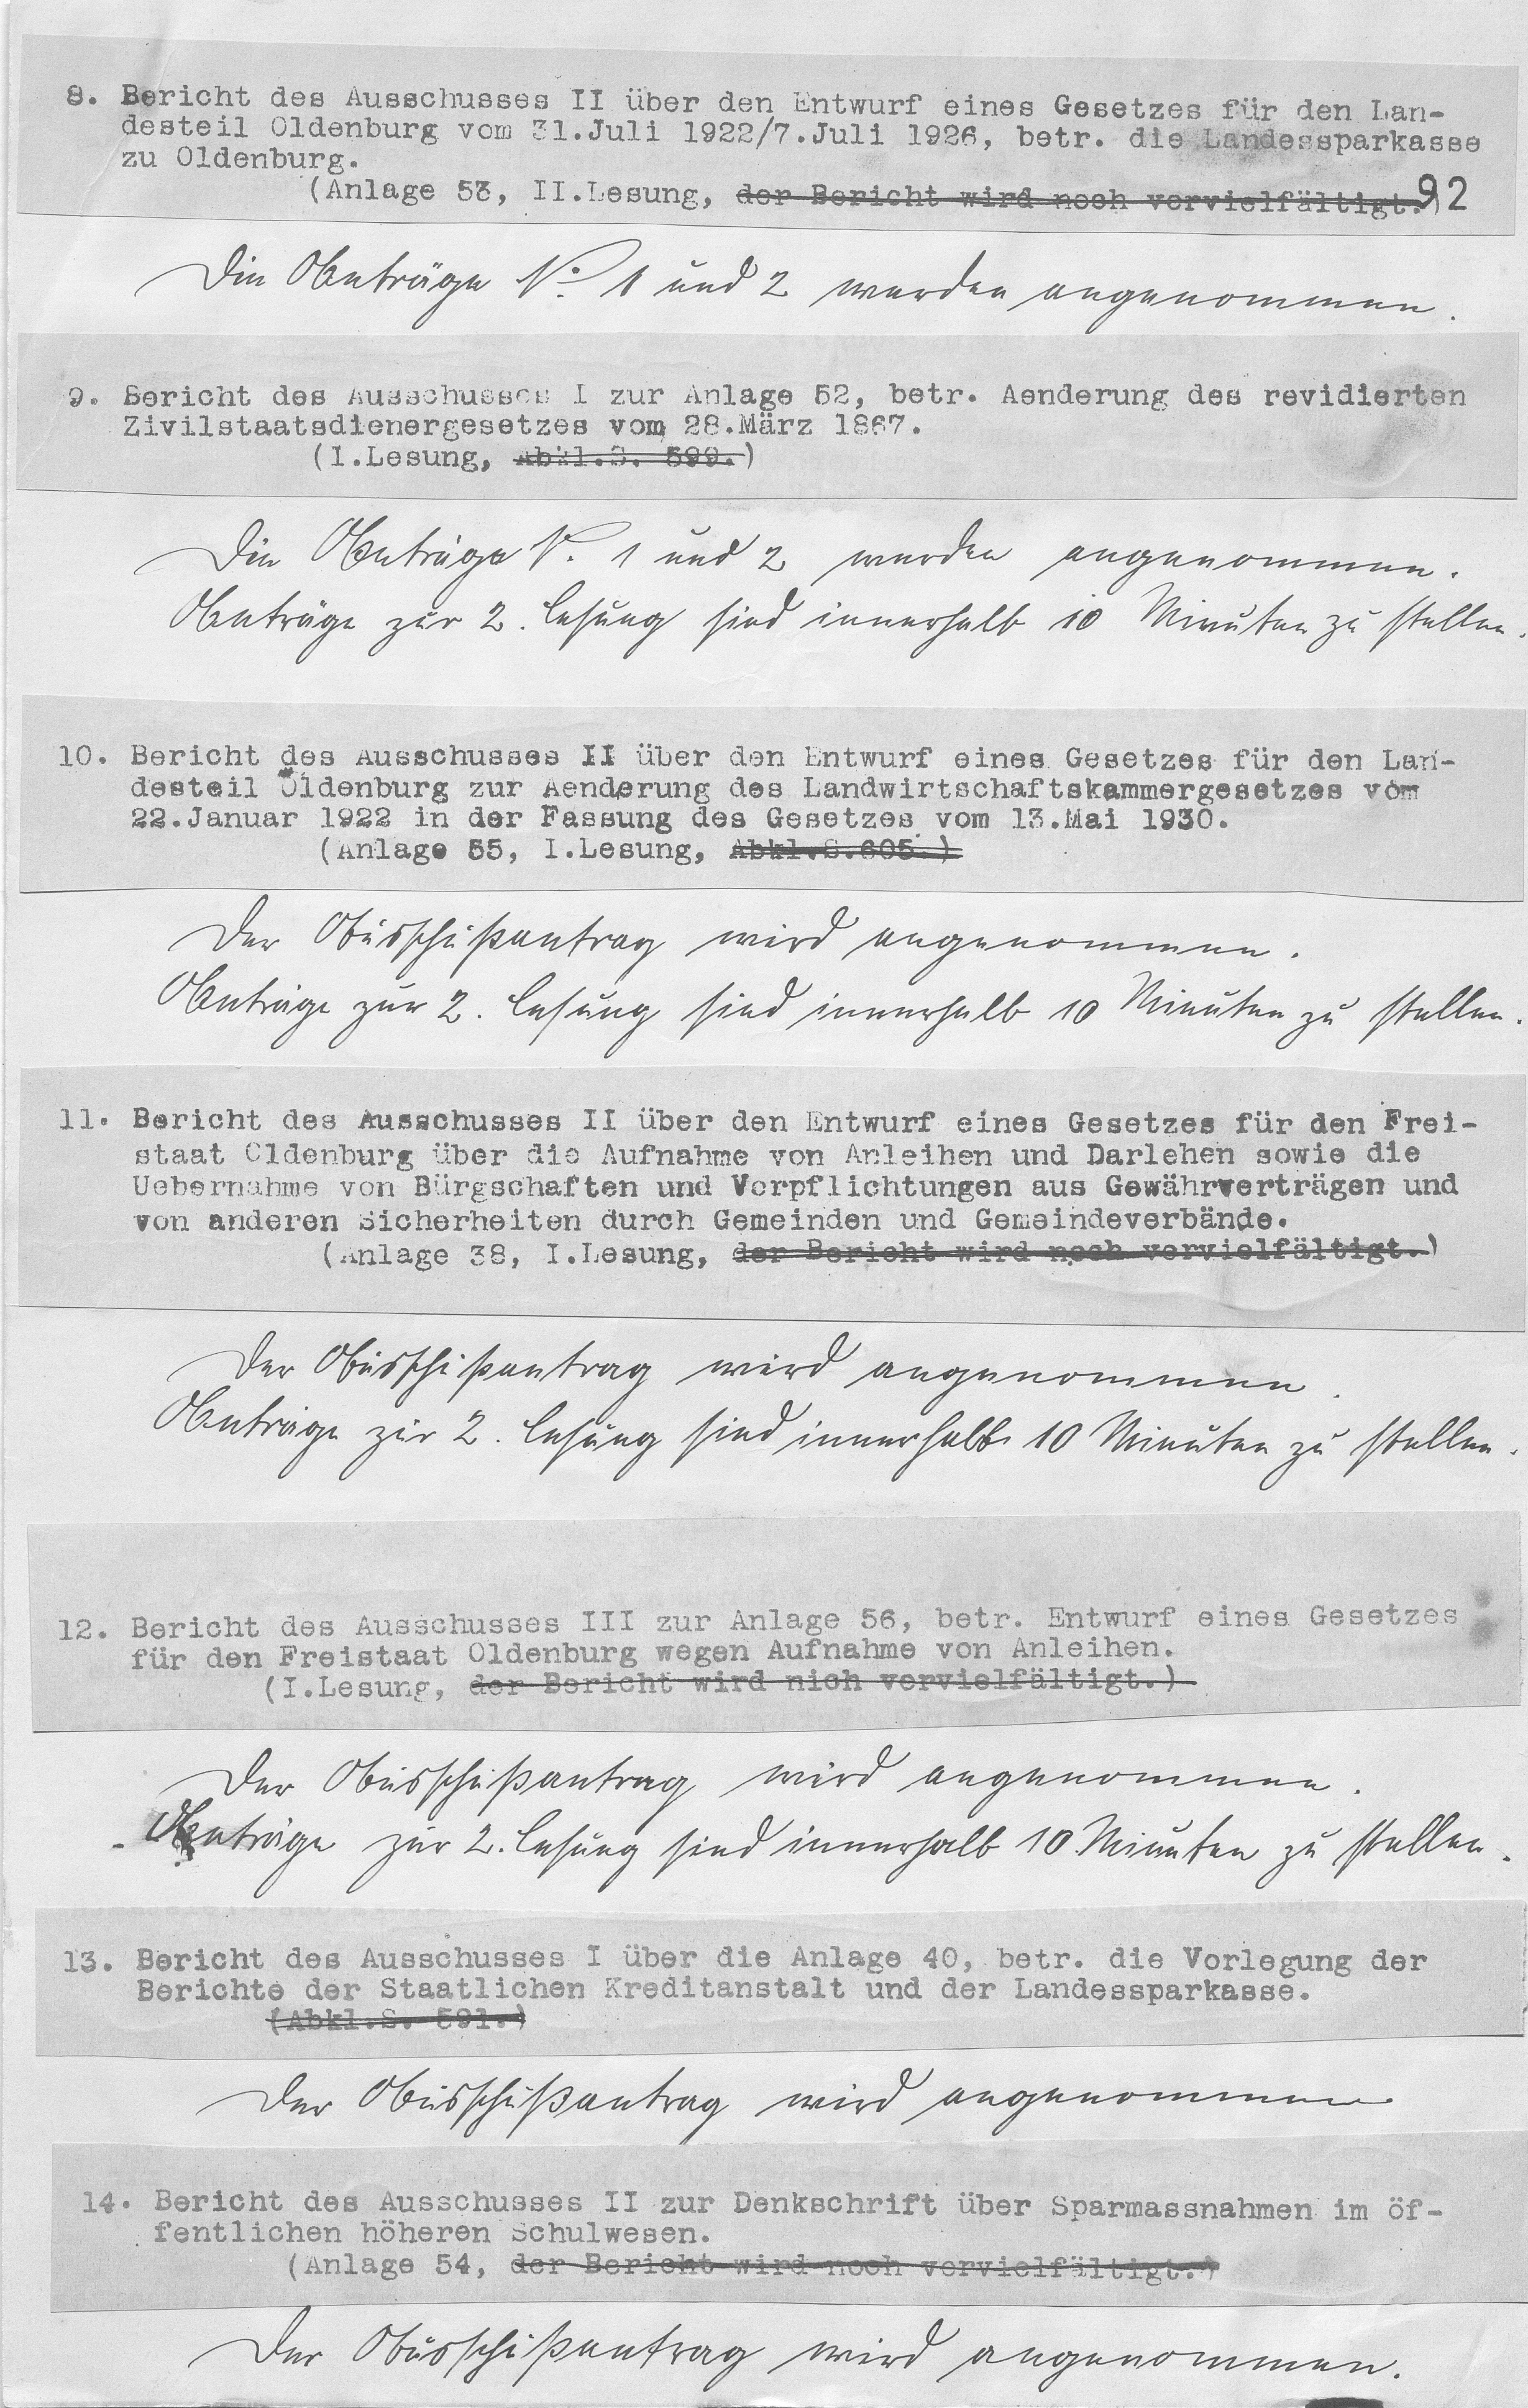 8. Bericht des Ausschusses II über den Entwurf eines Gesetzes für den Lan-
desteil Oldenburg vom 31.Juli 1922/7.Juli 1926, betr. die Landessparkasse
zu Oldenburg.
(Anlage 53, II.Lesung, der Bericht wird noch vervielfältigt.)
92
Die Anträge No. 1 und 2 werden angenommen.
9. Bericht des Ausschusses I zur Anlage 52, betr. Aenderung des revidierten
Zivilstaatsdienergesetzes vom 28.März 1867.
(I.Lesung, Abkl.S. 599.)
Die Anträge N. 1 und 2 werden angenommen.
Anträge zur 2. Lesung sind innerhalb 10 Minuten zu stellen.
10. Bericht des Ausschusses II über den Entwurf eines Gesetzes für den Lan-
desteil Oldenburg zur Aenderung des Landwirtschaftskammergesetzes vom
22.Januar 1922 in der Fassung des Gesetzes vom 13.Mai 1930.
(Anlage 55, I.Lesung, Abkl.S.605.)
Der Ausschußantrag wird angenommen.
Anträge zur 2. Lesung sind innerhalb 10 Minuten zu stellen.
11. Bericht des Ausschusses II über den Entwurf eines Gesetzes für den Frei-
staat Oldenburg über die Aufnahme von Anleihen und Darlehen sowie die
Uebernahme von Bürgschaften und Verpflichtungen aus Gewährverträgen und
von anderen Sicherheiten durch Gemeinden und Gemeindeverbände.
(Anlage 38, I.Lesung, der Bericht wird noch vervielfältigt.)
Der Ausschußantrag wird angenommen.
Anträge zur 2. Lesung sind innerhalb 10 Minuten zu stellen.
12. Bericht des Ausschusses III zur Anlage 56, betr. Entwurf eines Gesetzes
für den Freistaat Oldenburg wegen Aufnahme von Anleihen.
(I.Lesung, der Bericht wird nich vervielfältigt.)
Der Ausschußantrag wird angenommen.
Anträge zur 2. Lesung sind innerhalb 10 Minuten zu stellen.
13. Bericht des Ausschusses I über die Anlage 40, betr. die Vorlegung der
Berichte der Staatlichen Kreditanstalt und der Landessparkasse.
(Abkl.S. 591.)
Der Ausschußantrag wird angenommen
14. Bericht des Ausschusses II zur Denkschrift über Sparmassnahmen im öf-
fentlichen höheren Schulwesen.
(Anlage 54, der Bericht wird noch vervielfältigt.)
Der Ausschußantrag wird angenommen.